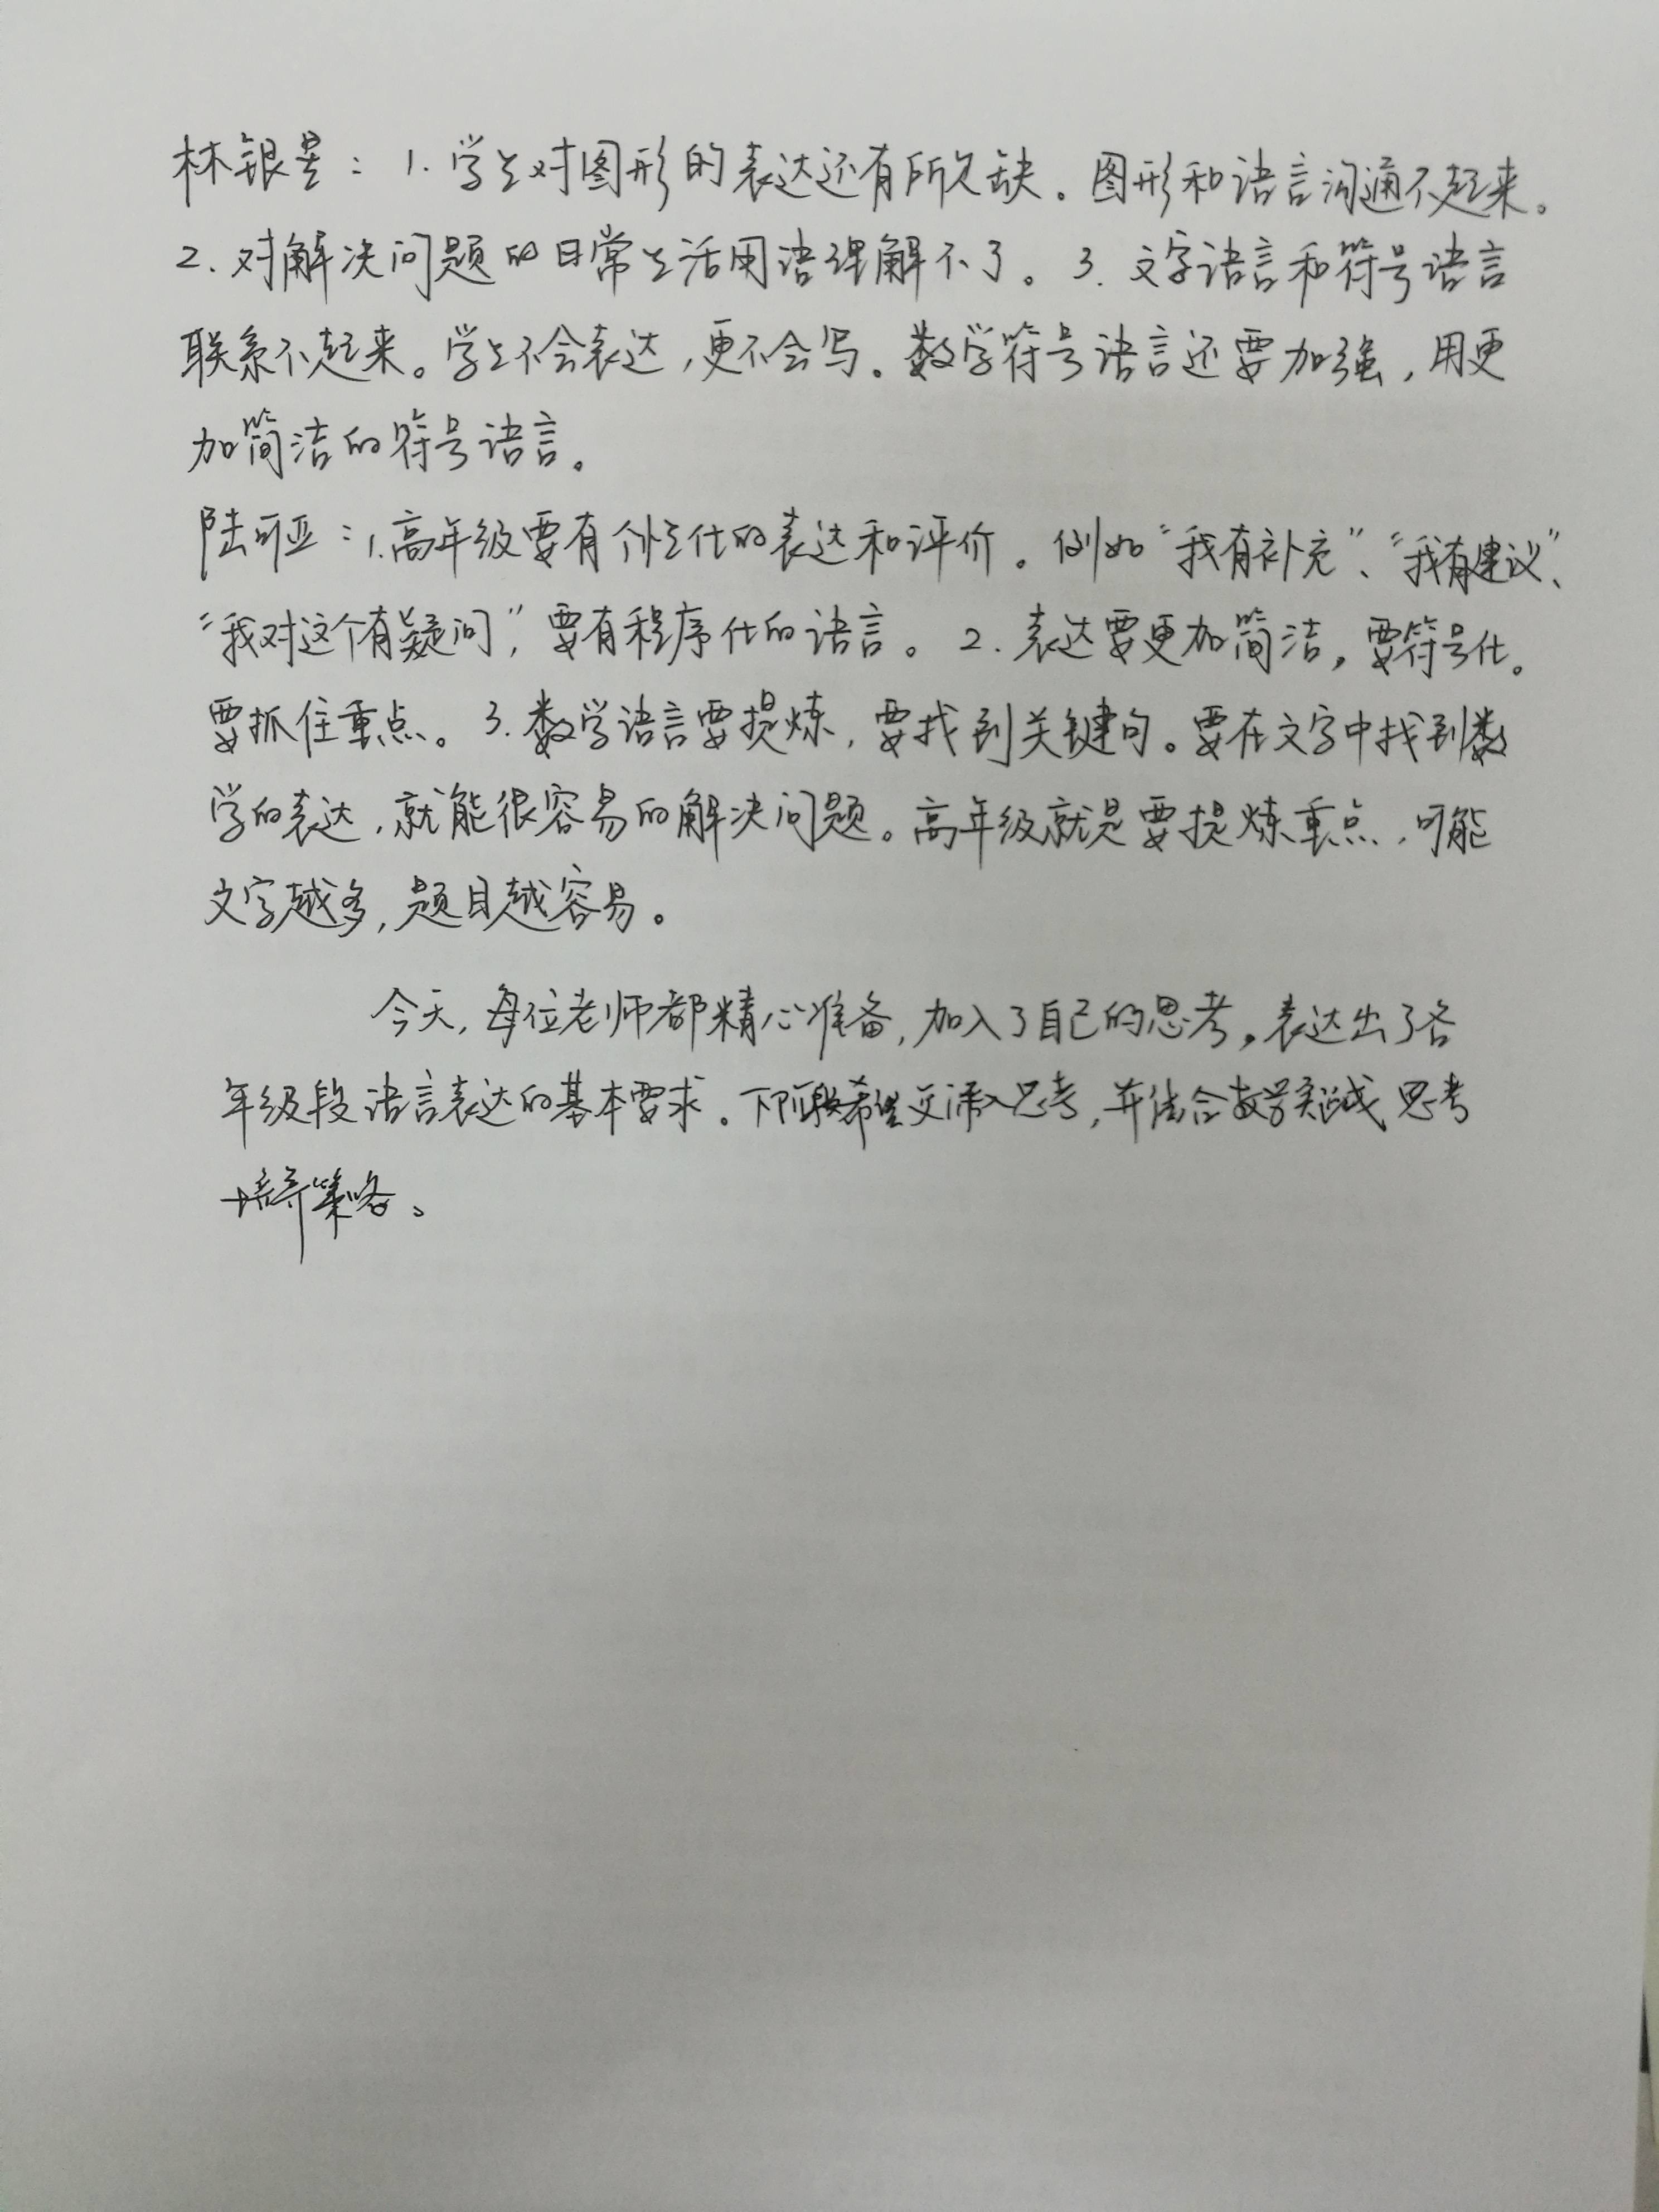 林银星：1. 学生对图形的表达还有所欠缺。图形和语言沟通不起来。
2. 对解决问题的日常生活用语理解不了。3. 文字语言和符号语言
联系不起来。学生不会表达，更不会写。数学符号语言还要加强，用更
加简洁的符号语言。
陆可亚：1.高年级要有个性化的表达和评价。例如“我有补充”、“我有建议”、
“我对这个有疑问”，要有程序化的语言。2. 表达要更加简洁，要符号化。
要抓住重点。3. 数学语言要提炼，要找到关键句。要在文字中找到数
学的表达，就能很容易的解决问题。高年级就是要提炼重点，可能
文字越多，题目越容易。
今天，每位老师都精心准备，加入了自己的思考，表达出了各
年级段语言表达的基本要求。下阶段希望交流深入思考，并结合教学实践思考
培养策略。